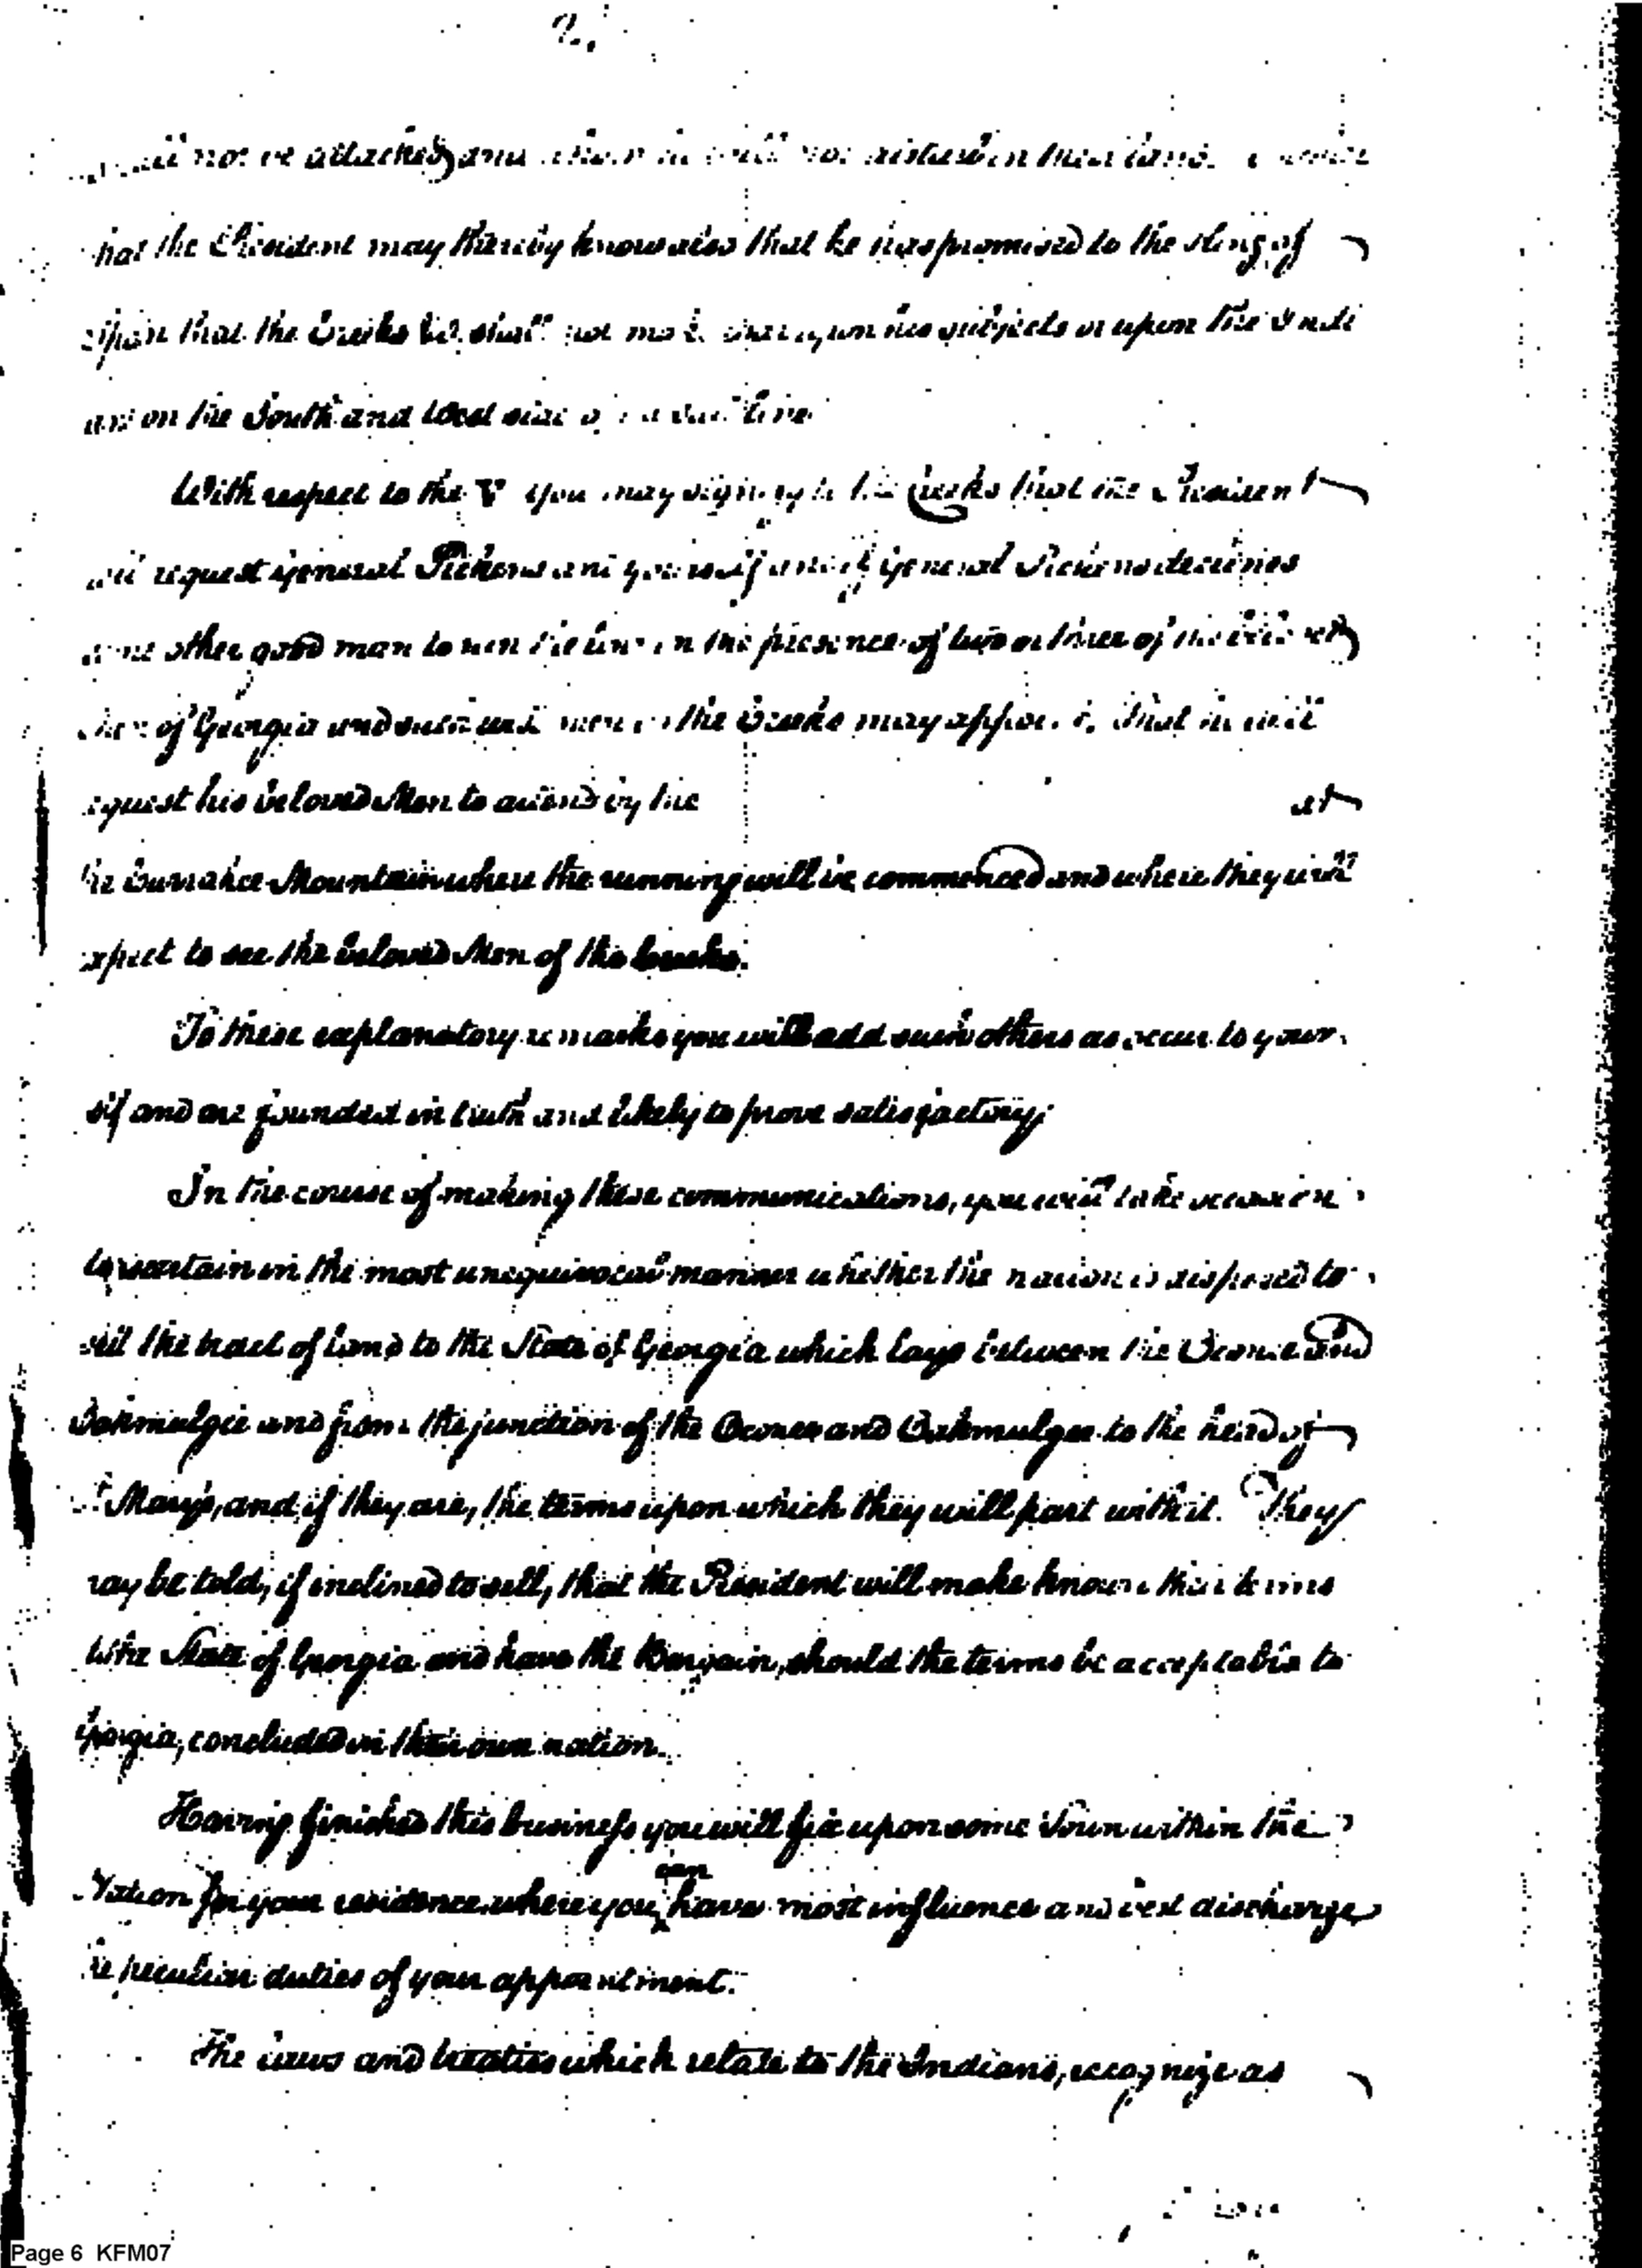 2.
not be attacked and
that the President may thereby know also that he has promised to the King of
Spain that the Creeks &c. shall not make war upon his subjects or upon the Indi
ans on the South and West side of said line
With respect to the V you may signify to the Creeks that the President
will request General Pickens and yourself and if General Pickens declines
some other good man to run the line in the presence of two or three of the
of Georgia and such men as the Creeks may appoint. That he will
request his beloved Men to attend by the at
the Currahee Mountain where the running will be commenced and where they will
expect to see the beloved Men of the Creeks.
To these explanatory remarks you will add such others as occur to your
self and are founded in truth and likely to prove satisfactory.
In the course of making these communications, you will take occasion
to ascertain in the most unequivocal manner whether the nation is disposed to
sell the tract of land to the State of Georgia which lays between the Oconee and
Oakmulgee and from the junction of the Oconee and Oakmulgee to the head of
St Mary's, and if they are, the terms upon which they will part with it. They
may be told, if inclined to sell, that the President will make known their terms
to the State of Georgia and have the Bargain, should the terms be acceptable to
Georgia, concluded in their own nation.
Having finished this business you will fix upon some Town within the
can
Nation for your residence where you have most influence and best discharge
the peculiar duties of your appointment.
The laws and treaties which relate to the Indians, recognize as
Page 6 KFM07